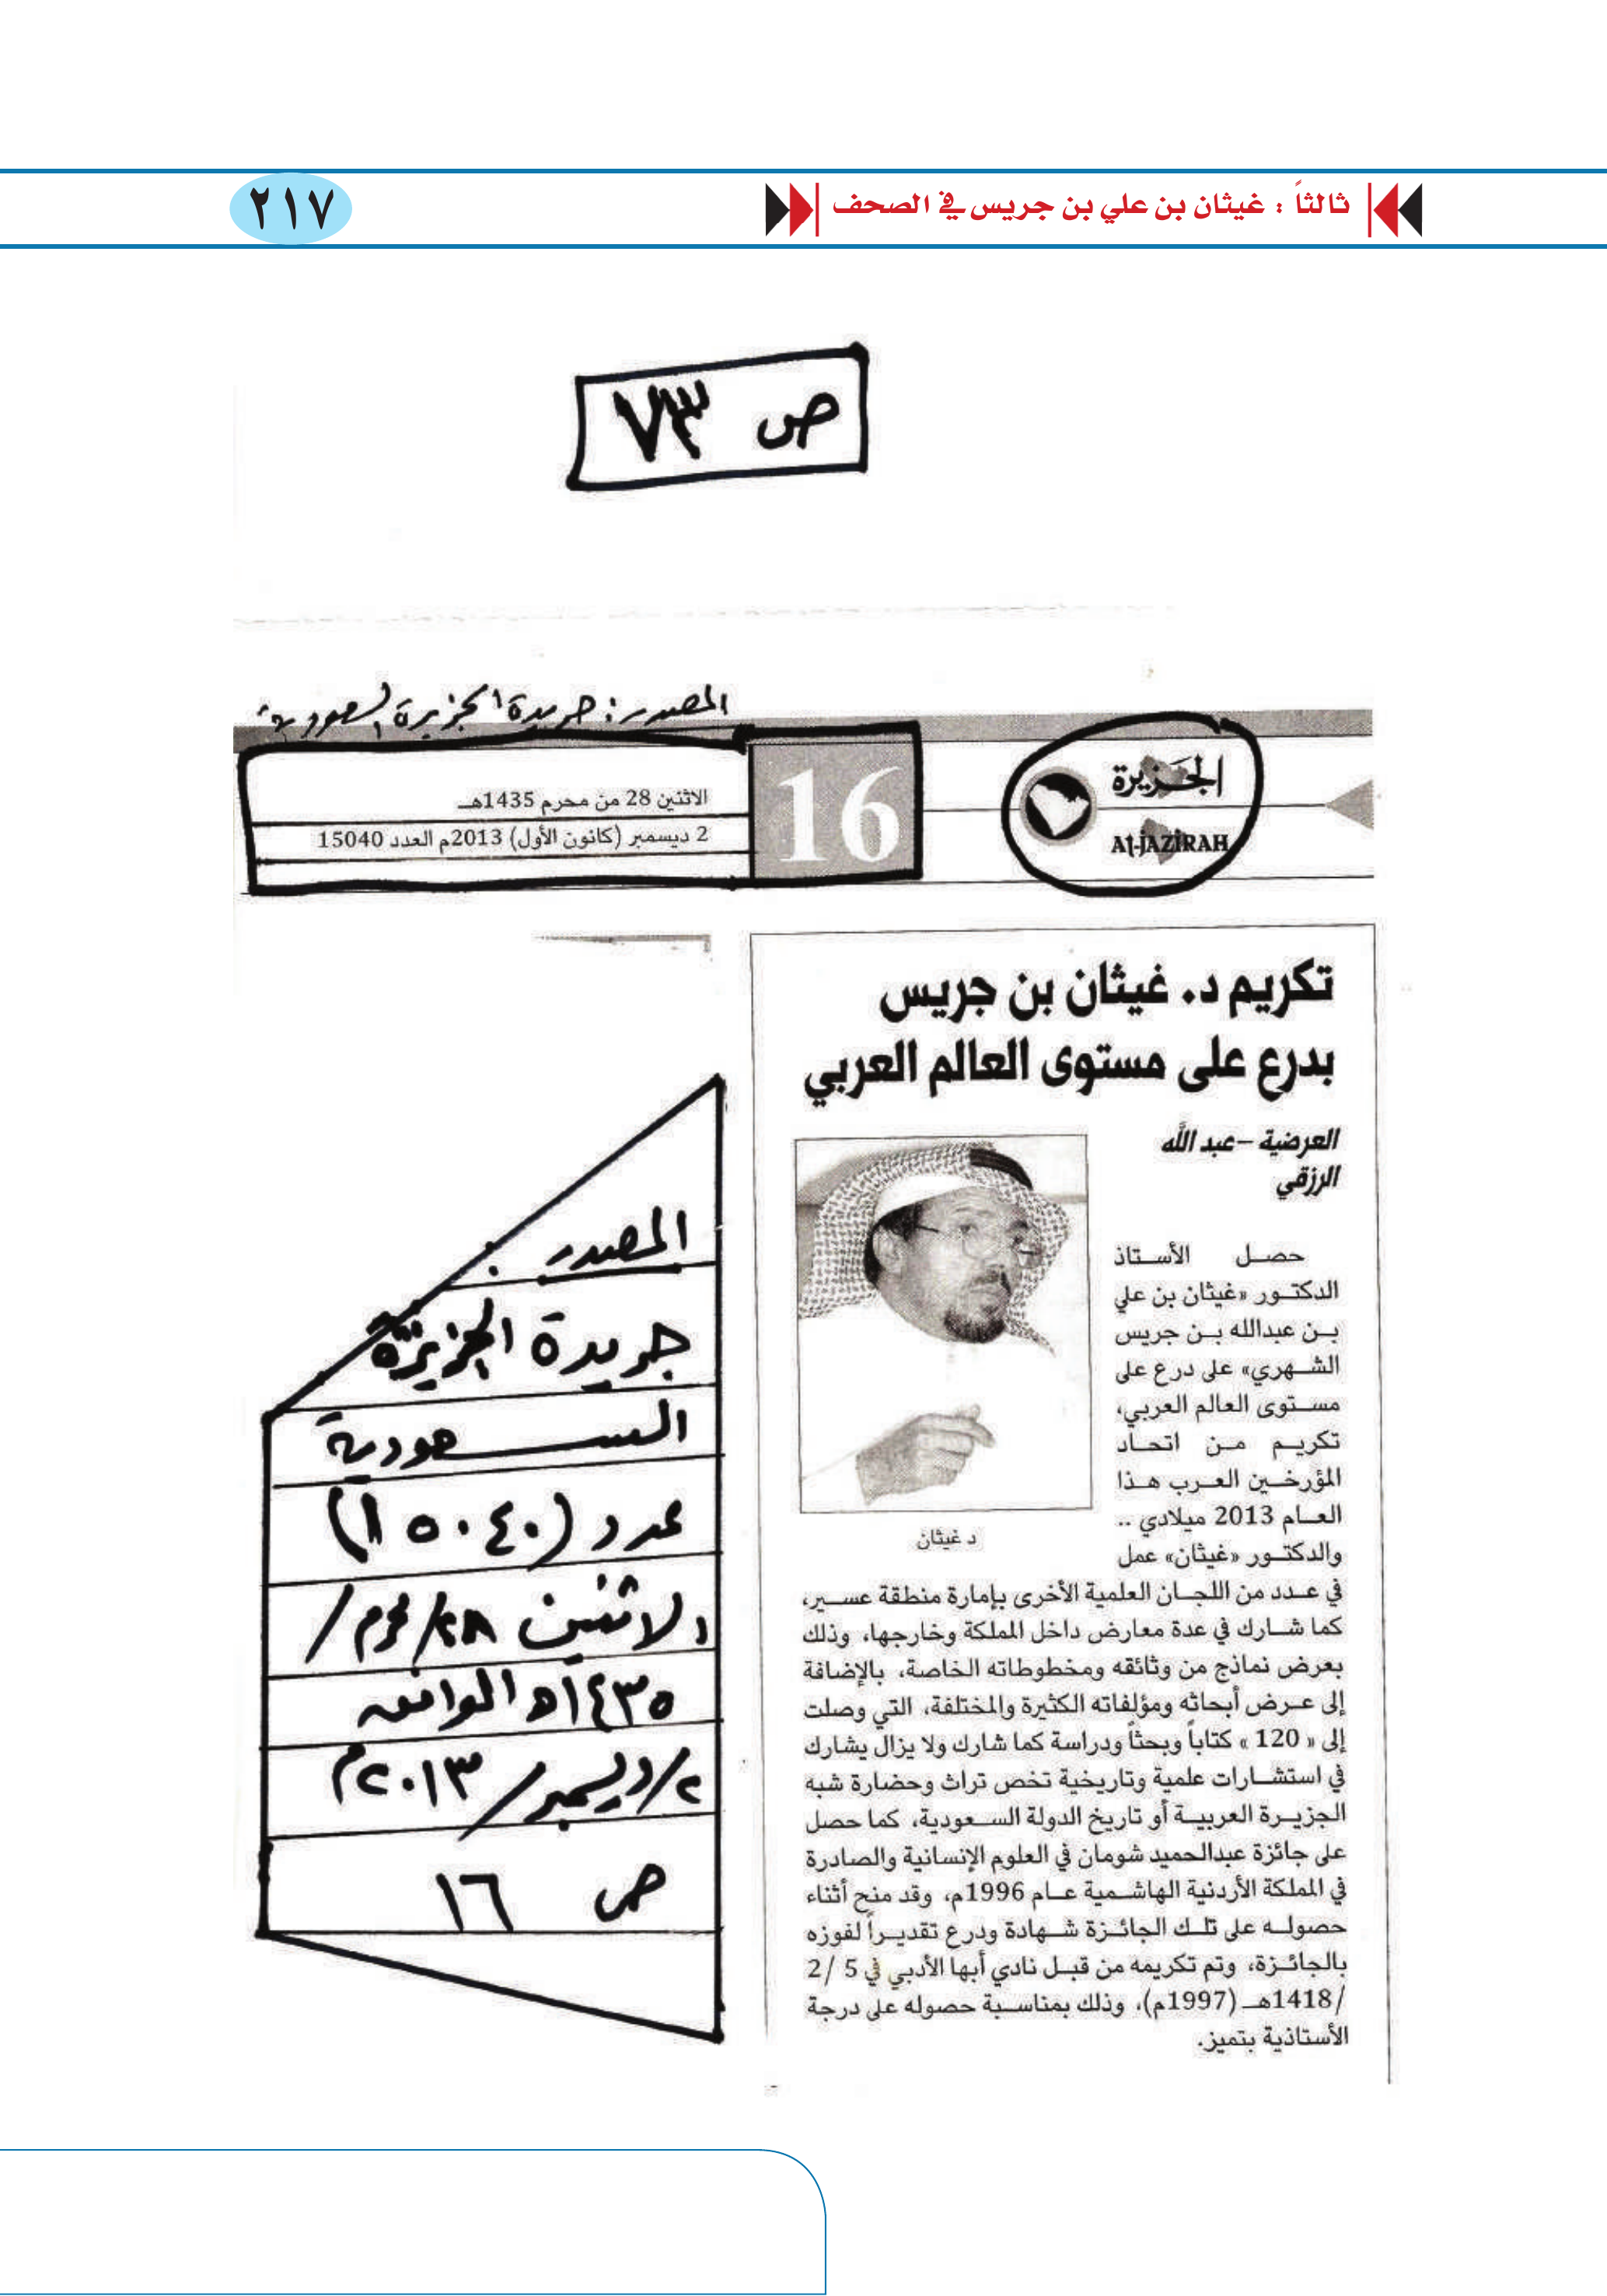 ثالثاً : غيثان بن علي بن جريس في الصحف
٢١٧
ص ٧٣
المصدر: جريدة الجزيرة السعودية
الجزيرة
Al-JAZIRAH
16
الاثنين 28 من محرم 1435هـ
2 ديسمبر (كانون الأول) 2013م العدد 15040
تكريم د. غيثان بن جريس
بدرع على مستوى العالم العربي
العرضية – عبد الله
الرزقي
حصل الأستاذ
الدكتور «غيثان بن علي
بن عبدالله بن جريس
الشهري» على درع على
مستوى العالم العربي،
تكريم من اتحاد
المؤرخين العرب هذا
العام 2013 ميلادي ..
والدكتور «غيثان» عمل
في عدد من اللجان العلمية الأخرى بإمارة منطقة عسير،
كما شارك في عدة معارض داخل المملكة وخارجها، وذلك
بعرض نماذج من وثائقه ومخطوطاته الخاصة، بالإضافة
إلى عرض أبحاثه ومؤلفاته الكثيرة والمختلفة، التي وصلت
إلى « 120 » كتاباً وبحثاً ودراسة كما شارك ولا يزال يشارك
في استشارات علمية وتاريخية تخص تراث وحضارة شبه
الجزيرة العربية أو تاريخ الدولة السعودية، كما حصل
على جائزة عبدالحميد شومان في العلوم الإنسانية والصادرة
في المملكة الأردنية الهاشمية عام 1996م، وقد منح أثناء
حصوله على تلك الجائزة شهادة ودرع تقديراً لفوزه
بالجائزة، وتم تكريمه من قبل نادي أبها الأدبي في 5 /2
/1418هـ (1997م)، وذلك بمناسبة حصوله على درجة
الأستاذية بتميز.
د غيثان
المصدر :
جريدة الجزيرة
السعودية
عدد (١٥٠٤٠)
الاثنين ٢٨/محرم/
١٤٣٥هـ الموافق
٢/ديسمبر/٢٠١٣م
ص ١٦